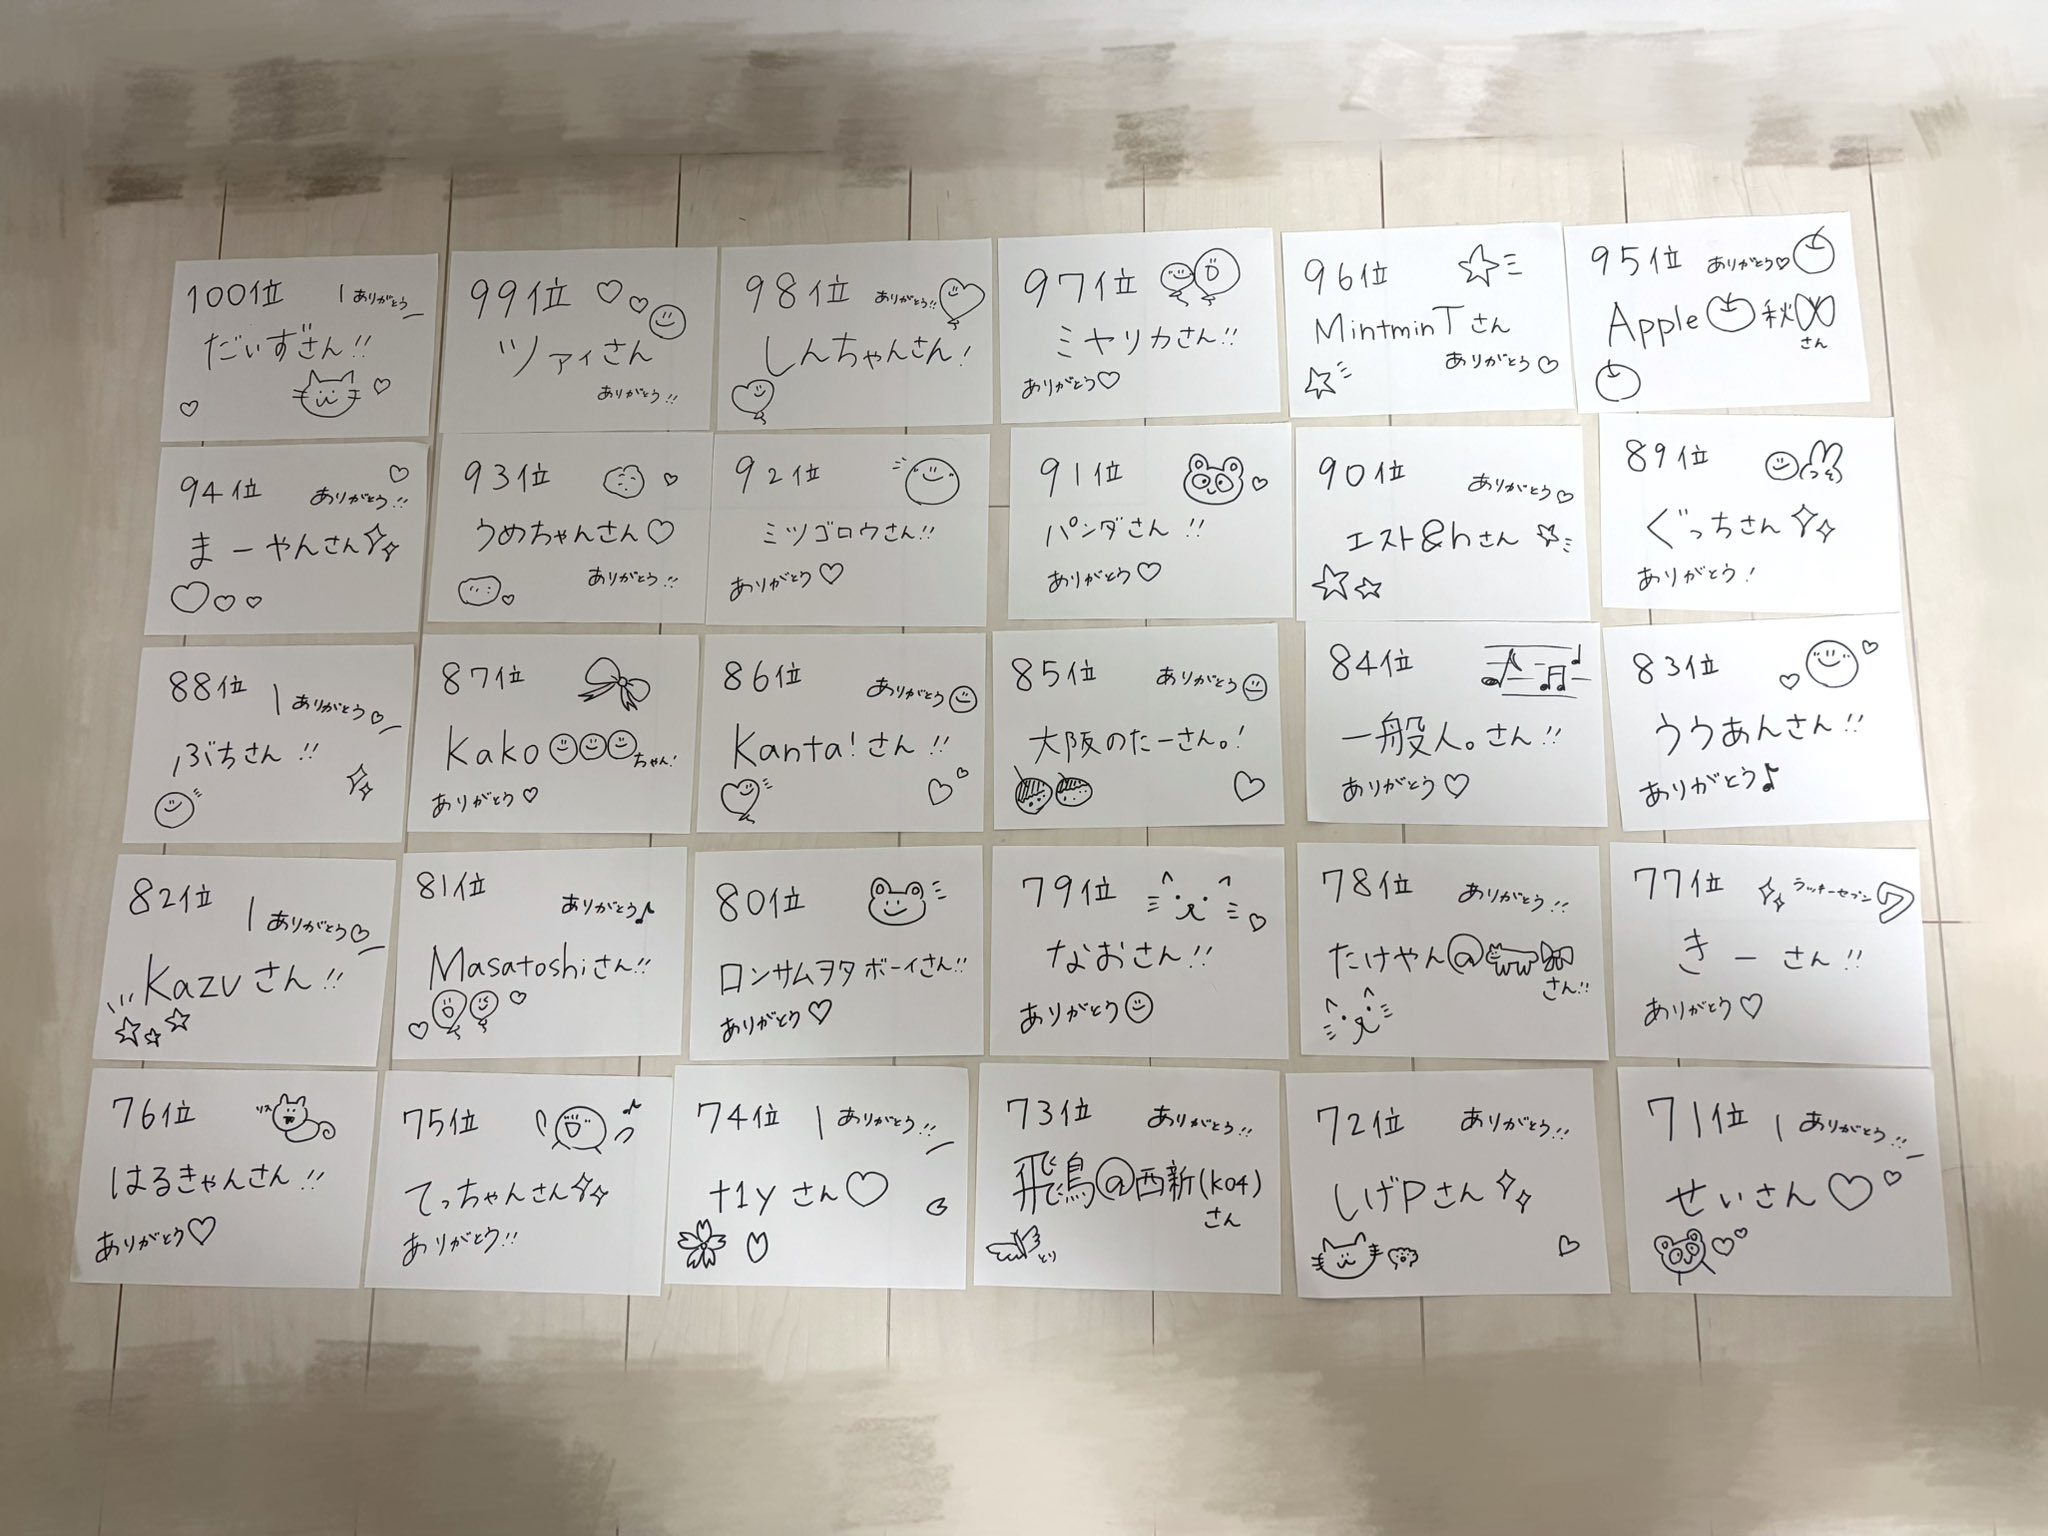 100位
ありがとう
だいずさん!!
99位
ツァィさん
ありがとう!!
98位 ありがとう!!
しんちゃんさん!
97位
ミヤリカさん!!
ありがとう♡
96位
MintminTさん
ありがとう♡
95位 ありがとう♡
Apple🍎秋
さん
94位
ありがとう!!
まーやんさん
93位
うめちゃんさん♡
ありがとう!!
92位
ミツゴロウさん!!
ありがとう♡
91位
パンダさん!!
ありがとう♡
90位
ありがとう♡
エスト&hさん
89位
ぐっちさん
ありがとう!
88位
ありがとう♡
ぶちさん!!
87位
Kako☺☺☺ちゃん!
ありがとう♡
86位
ありがとう☺
Kanta!さん!!
85位
ありがとう☺
大阪のたーさん。!
84位
一般人。さん!!
ありがとう♡
83位
ううあんさん!!
ありがとう♪
82位
ありがとう♡
Kazuさん!!
81位
ありがとう♪
Masatoshiさん!!
80位
ロンサムヲタボーイさん!!
ありがとう♡
79位
なおさん!!
ありがとう☺
78位
ありがとう!!
たけやん@
さん!!
77位 ラッキーセブン
きーさん!!
ありがとう♡
76位 リス
はるきゃんさん!!
ありがとう♡
75位
てっちゃんさん
ありがとう!!
74位 ありがとう!!
t1yさん♡
73位
ありがとう!!
飛鳥@西新(K04)
さん
とり
72位
ありがとう!!
しげPさん
71位 ありがとう!!
せいさん♡